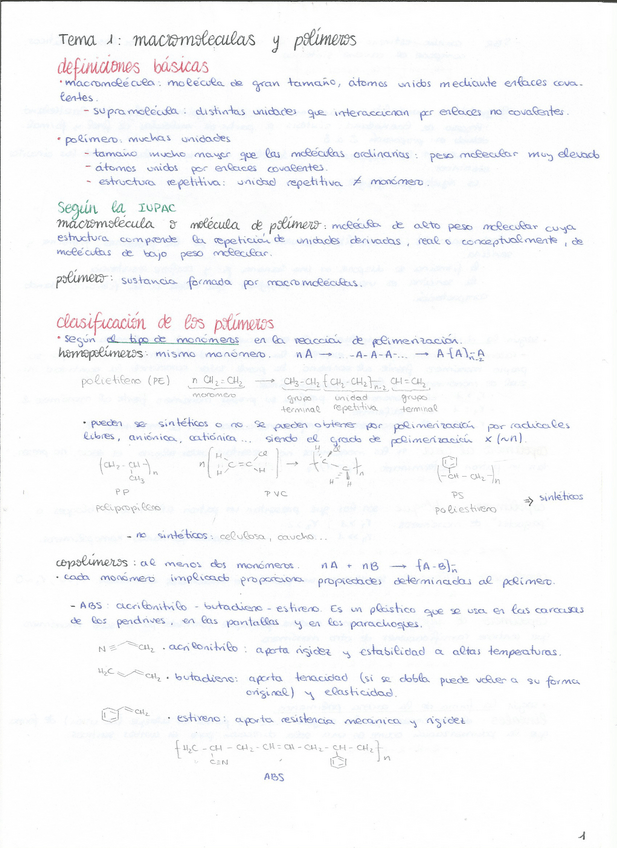 Tema 1: macromoleculas y polímeros
definiciones básicas
· macromolécula: molécula de gran tamaño, átomos unidos mediante enlaces cova-
lentes.
- supramolécula: distintas unidades que interaccionan por enlaces no covalentes.
· polímero: muchas unidades
- tamaño mucho mayor que las moléculas ordinarias: peso molecular muy elevado
- átomos unidos por enlaces covalentes.
- estructura repetitiva: unidad repetitiva ≠ monómero.
Según la IUPAC
macromolécula o molécula de polímero: molécula de alto peso molecular cuya
estructura comprende la repetición de unidades derivadas, real o conceptualmente, de
moléculas de bajo peso molecular.
polímero: sustancia formada por macromoléculas.
clasificación de los polímeros
· según el tipo de monómeros en la reacción de polimerización.
homopolímeros: mismo monómero. nA → ...-A-A-A-... → A{A}n-2-A
polietileno (PE) n CH2=CH2 → CH3-CH2{CH2-CH2}n-2 CH=CH2
monómero grupo terminal unidad repetitiva grupo terminal
· pueden ser sintéticos o no. Se pueden obtener por polimerización por radicales
libres, aniónica, catiónica... siendo el grado de polimerización x (~n).
(CH2-CH)n CH3 n[H H C=C Cl H] → {H Cl C C H H}n (CH-CH2)n
PP PVC PS ⇒ sintéticos
polipropileno poliestireno
- no sintéticos: celulosa, caucho...
copolímeros: al menos dos monómeros. nA + nB → {A-B}n
· cada monómero implicado proporciona propiedades determinadas al polímero.
- ABS: acrilonitrilo - butadieno - estireno. Es un plástico que se usa en las carcasas
de los pendrives, en las pantallas y en los parachoques.
N≡ CH2 · acrilonitrilo: aporta rigidez y estabilidad a altas temperaturas.
H2C CH2 · butadieno: aporta tenacidad (si se dobla puede volver a su forma
original) y elasticidad.
CH2 · estireno: aporta resistencia mecánica y rigidez
[H2C-CH-CH2-CH=CH-CH2-CH-CH2]n
C≡N
ABS
1